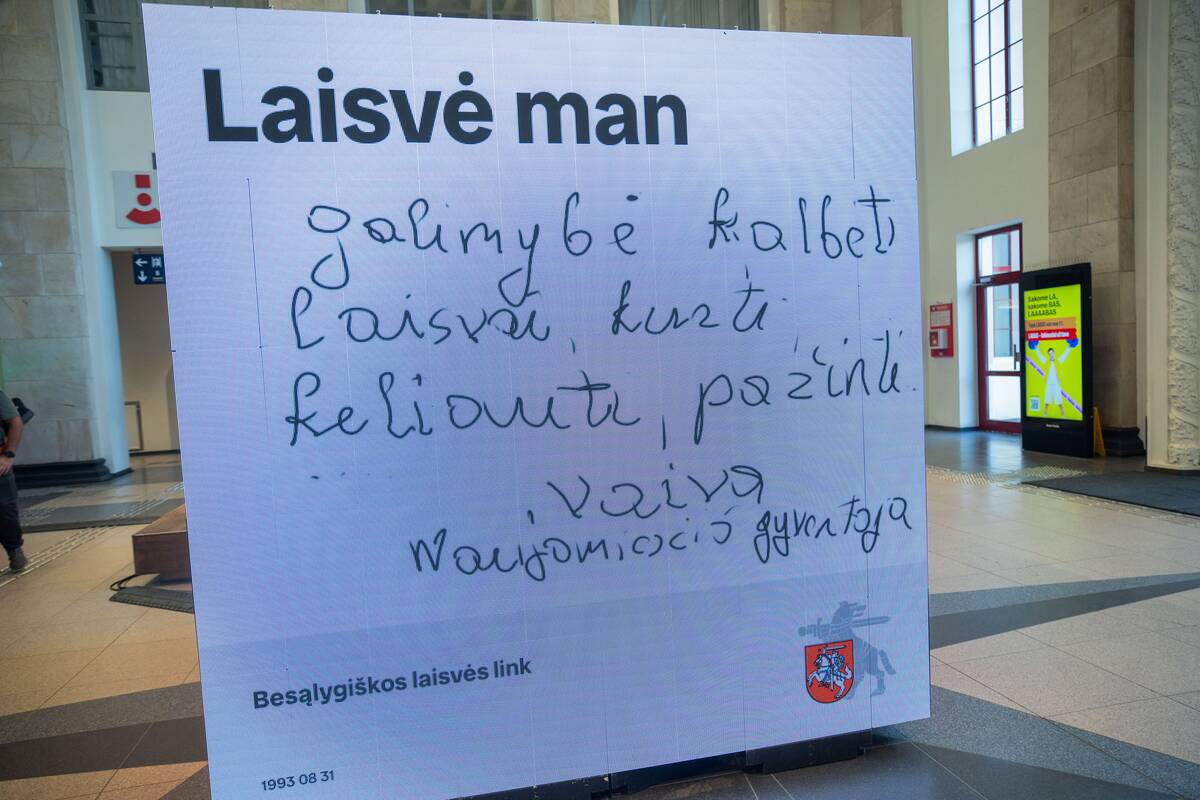 Laisvė man
galimybė kalbėti
laisvai, kurti
keliauti, pažinti.
, Vaiva
Naujamiesčio gyventoja
Besąlygiškos laisvės link
1993 08 31
Sakome LA,
sakome BAS,
LAAAABAS